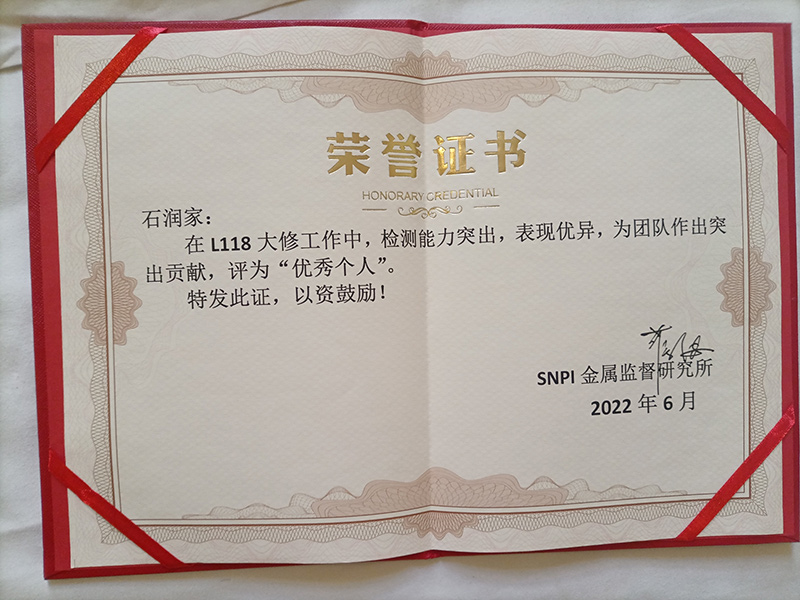 荣誉证书
HONORARY CREDENTIAL
石润家：
在 L118 大修工作中，检测能力突出，表现优异，为团队作出突
出贡献，评为“优秀个人”。
特发此证，以资鼓励！
SNPI 金属监督研究所
2022 年 6 月